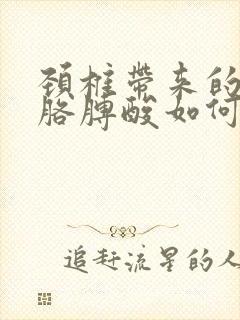 頚椎帶来的
胳膊酸如何
追赶流星的人